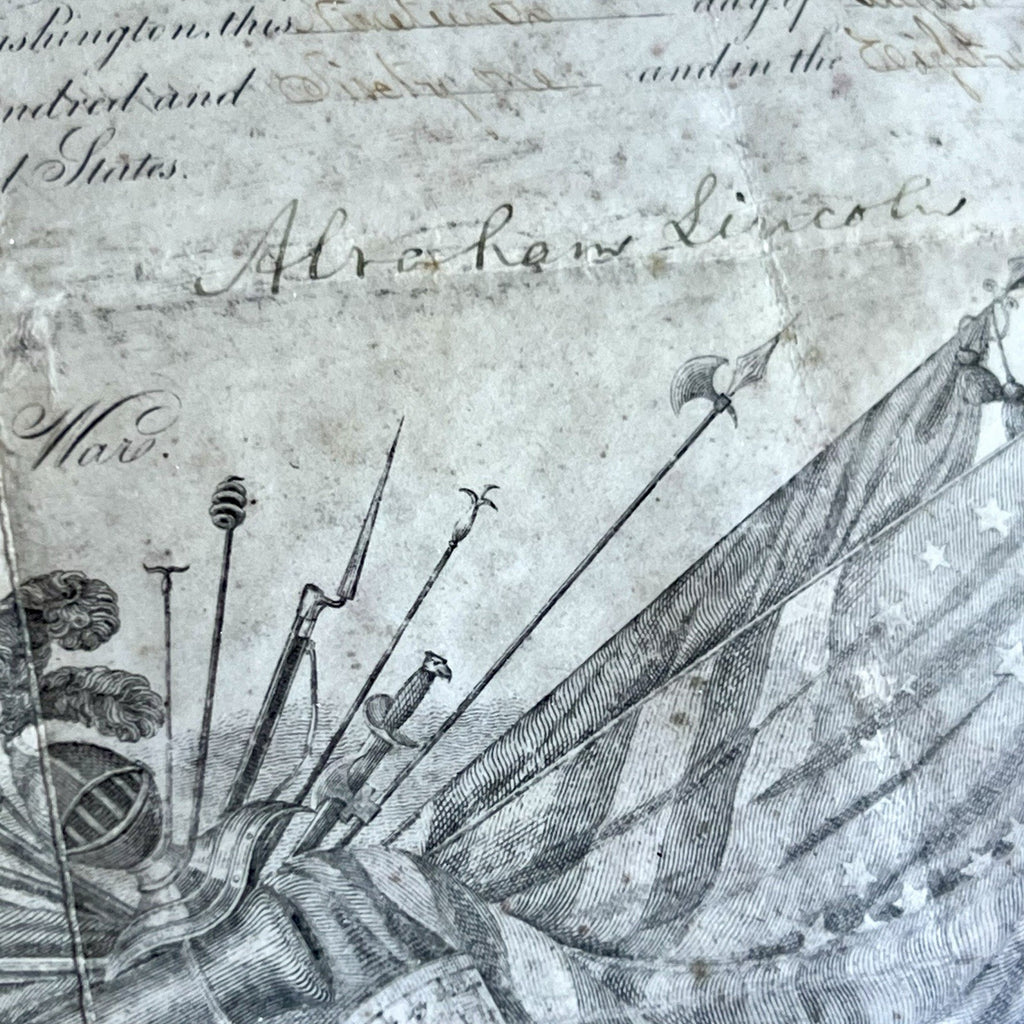 ashington, this Nineteenth day of
ndred and Sixty one and in the Eight
d States.
Abraham Lincoln
War.